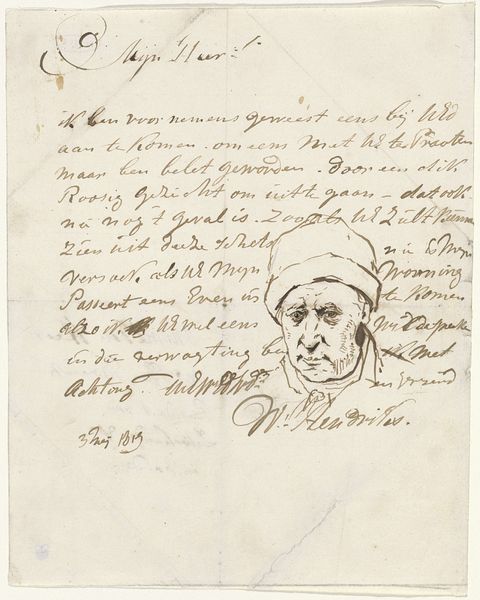 Mijn Heer
ik ben voor nemens geweest eens bij UEd
aan te komen. om eens met UE te Praaten
maar ben belet geworden. door een dik
Roosig gezicht om uit te gaan - dat ook
nu nog t geval is. Zooals UE zult kunnen
Zien uit deeze schets nu is Mijn
versoek als UE Mijn Wooning
Passeert eens Even in te komen
UE wel eens
in die verwagting ben ik met
Achting. vriend
W. Hendriks.
3 1819